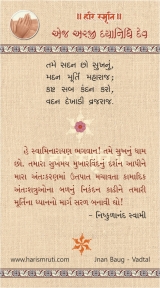 ॥ हरि स्मृति ॥
એજ અરજી દયાનિધિ દેવ
તમે સદન છો સુખનું,
મદન મૂર્તિ મહારાજ;
કષ્ટ સબ કંદન કરો,
વદન દેખાડી વ્રજરાજ.
હે સ્વામિનારાયણ ભગવાન! તમે સુખનું ધામ
છો. તમારા સુખમય મુખારવિંદનું દર્શન આપીને
મારા અંતઃકરણમાં ઉત્પાત મચાવતા કામાદિક
અંતઃશત્રુઓના બળનું નિકંદન કાઢીને તમારી
મૂર્તિના ધ્યાનનો માર્ગ સરળ બનાવી ઘો!
- નિષ્કુળાનંદ સ્વામી
www.harismruti.com Jnan Baug - Vadtal